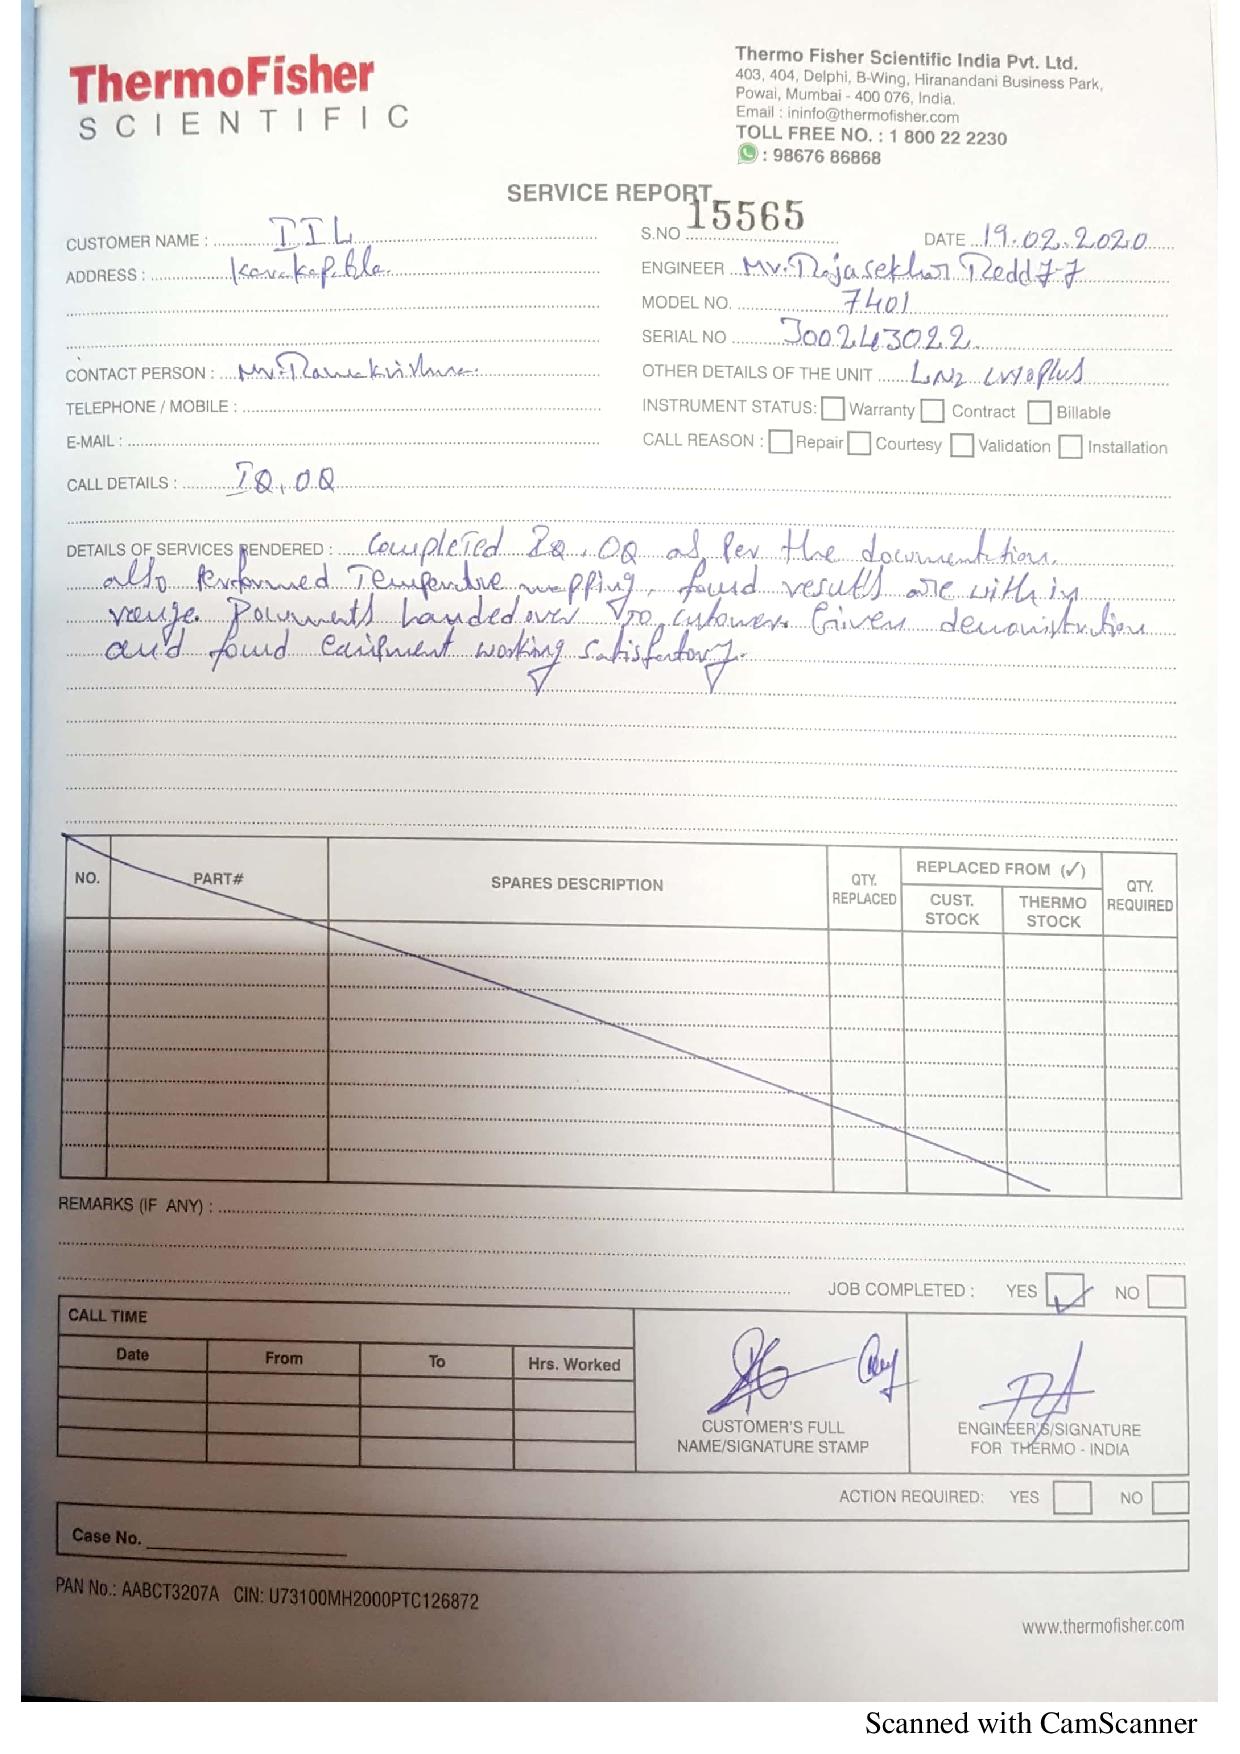 ThermoFisher
SCIENTIFIC
Thermo Fisher Scientific India Pvt. Ltd.
403, 404, Delphi, B-Wing, Hiranandani Business Park,
Powai, Mumbai - 400 076, India.
Email : ininfo@thermofisher.com
TOLL FREE NO. : 1 800 22 2230
: 98676 86868
SERVICE REPORT
CUSTOMER NAME : IIL
S.NO 15565 DATE 19.02.2020
ADDRESS :
ENGINEER Mr. Rajasekhar Reddy
MODEL NO. 7401
SERIAL NO J00243022
CONTACT PERSON : Mr. Ramakrishna
OTHER DETAILS OF THE UNIT LN2 CryoPlus
TELEPHONE / MOBILE :
INSTRUMENT STATUS: Warranty Contract Billable
E-MAIL :
CALL REASON : Repair Courtesy Validation Installation
CALL DETAILS : IQ, OQ
DETAILS OF SERVICES RENDERED : Completed IQ, OQ as per the documentation.
also performed Temperature mapping, found results are with in
range. Documents handed over to customer. Given demonistration
and found equipment working satisfactory.
NO. PART# SPARES DESCRIPTION QTY. REPLACED REPLACED FROM (✓) QTY. REQUIRED
CUST. STOCK THERMO STOCK
REMARKS (IF ANY) :
JOB COMPLETED : YES ✓ NO
CALL TIME
Date From To Hrs. Worked
CUSTOMER'S FULL
NAME/SIGNATURE STAMP
ENGINEER'S/SIGNATURE
FOR THERMO - INDIA
ACTION REQUIRED: YES NO
Case No.
PAN No.: AABCT3207A CIN: U73100MH2000PTC126872
www.thermofisher.com
Scanned with CamScanner